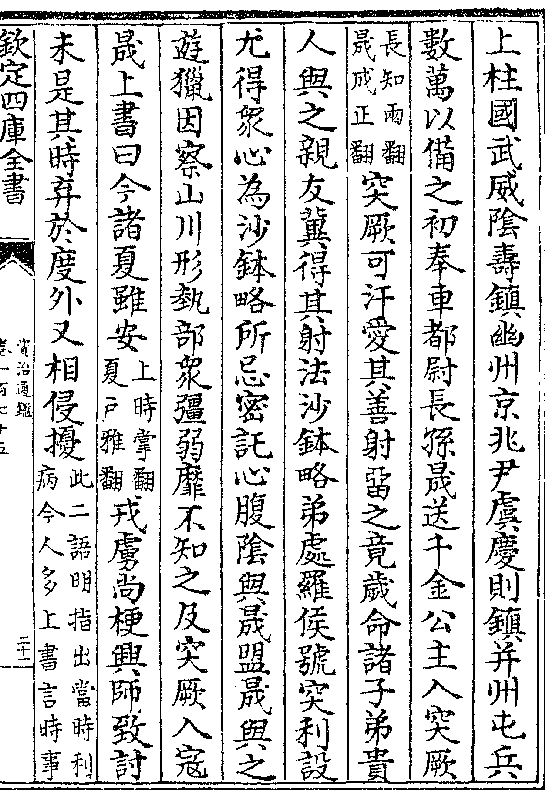 上柱國武威陰壽鎮幽州京兆尹虞慶則鎮并州屯兵
數萬以備之初奉車都尉長孫晟送千金公主入突厥
長知兩翻晟成正翻突厥可汗愛其善射留之竟歲命諸子弟貴
人與之親友冀得其射法沙鉢略弟處羅侯號突利設
尤得衆心為沙鉢略所忌密託心腹陰與晟盟晟與之
遊獵因察山川形埶部衆彊弱靡不知之及突厥入寇
晟上書曰今諸夏雖安上時掌翻夏戸雅翻戎虜尚梗興師致討
未是其時弃於度外又相侵擾此二語明指出當時利病今人多上書言時事
欽定四庫全書
資治通鑑
卷一百七十五
二十二